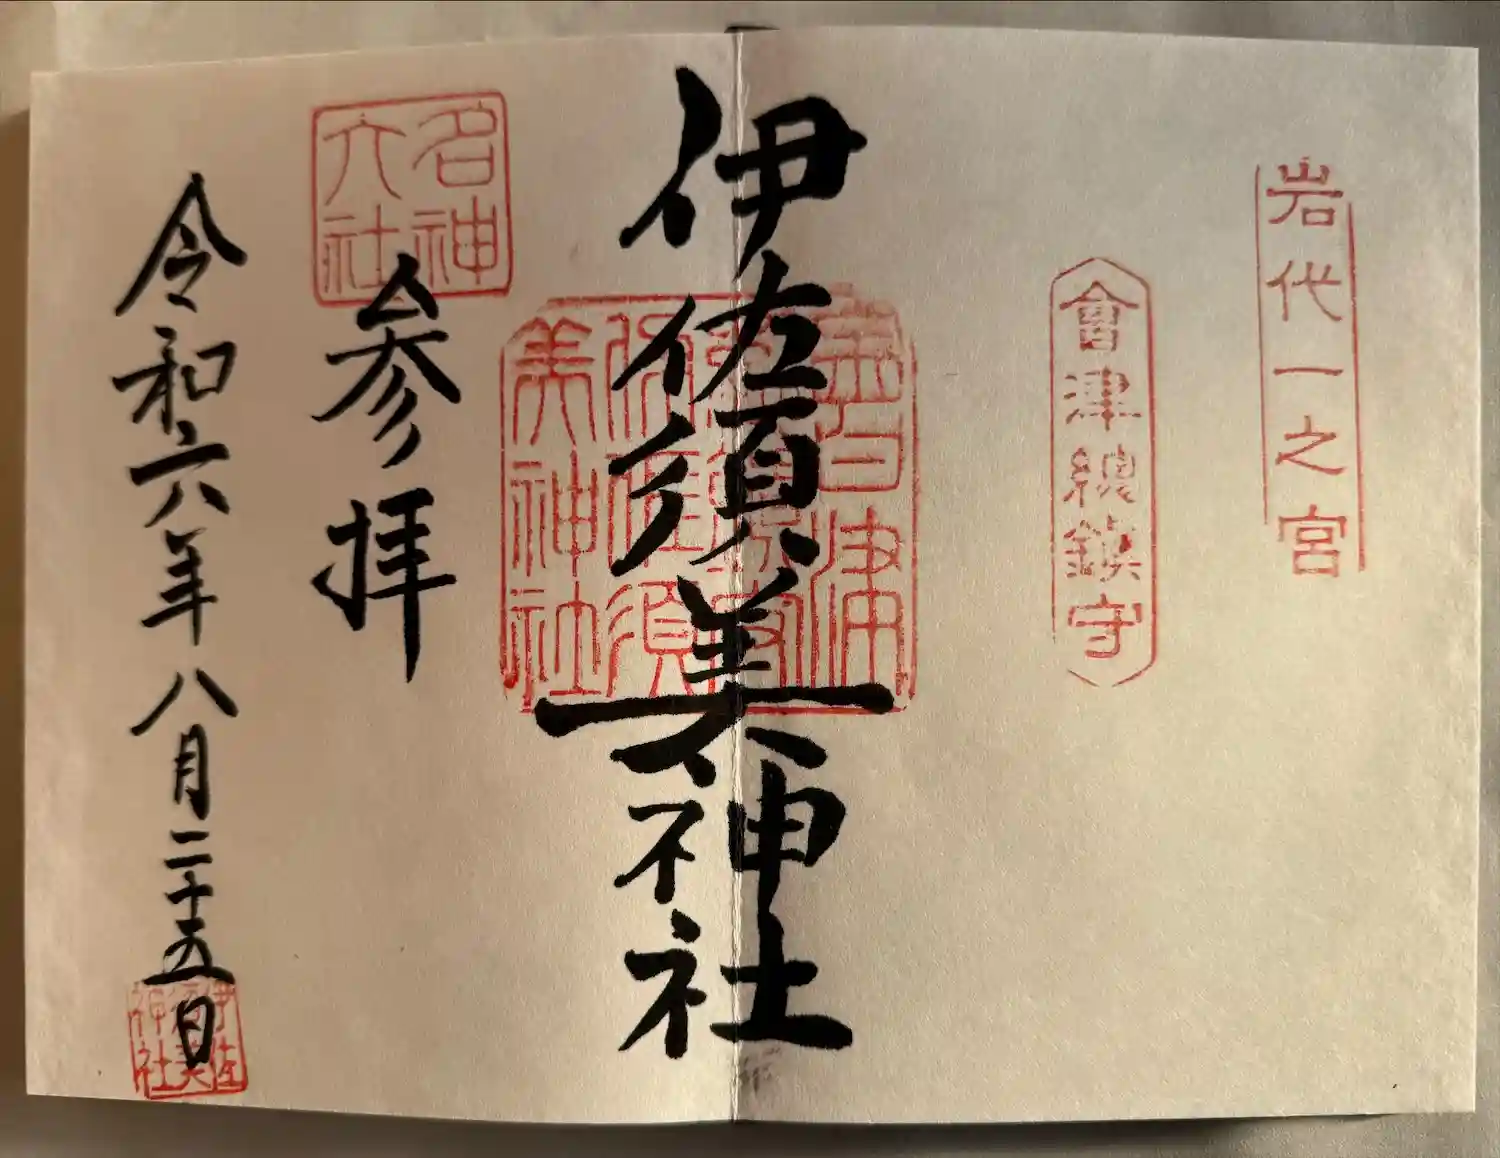 岩代一之宮
會津總鎮守
伊佐須美神社
會津
伊佐須
美神社
名神
大社
参拝
令和六年八月二十五日
伊佐
須美
神社